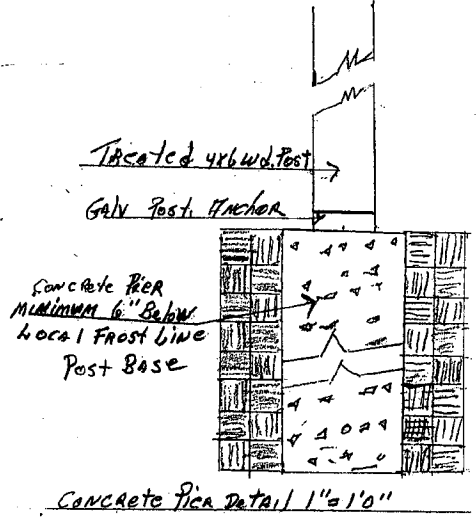 Treated 4x6 wd. Post
Galv Post. Anchor
Concrete Pier
Minimum 6" Below
Local Frost Line
Post Base
Concrete Pier Detail 1"=1'0"